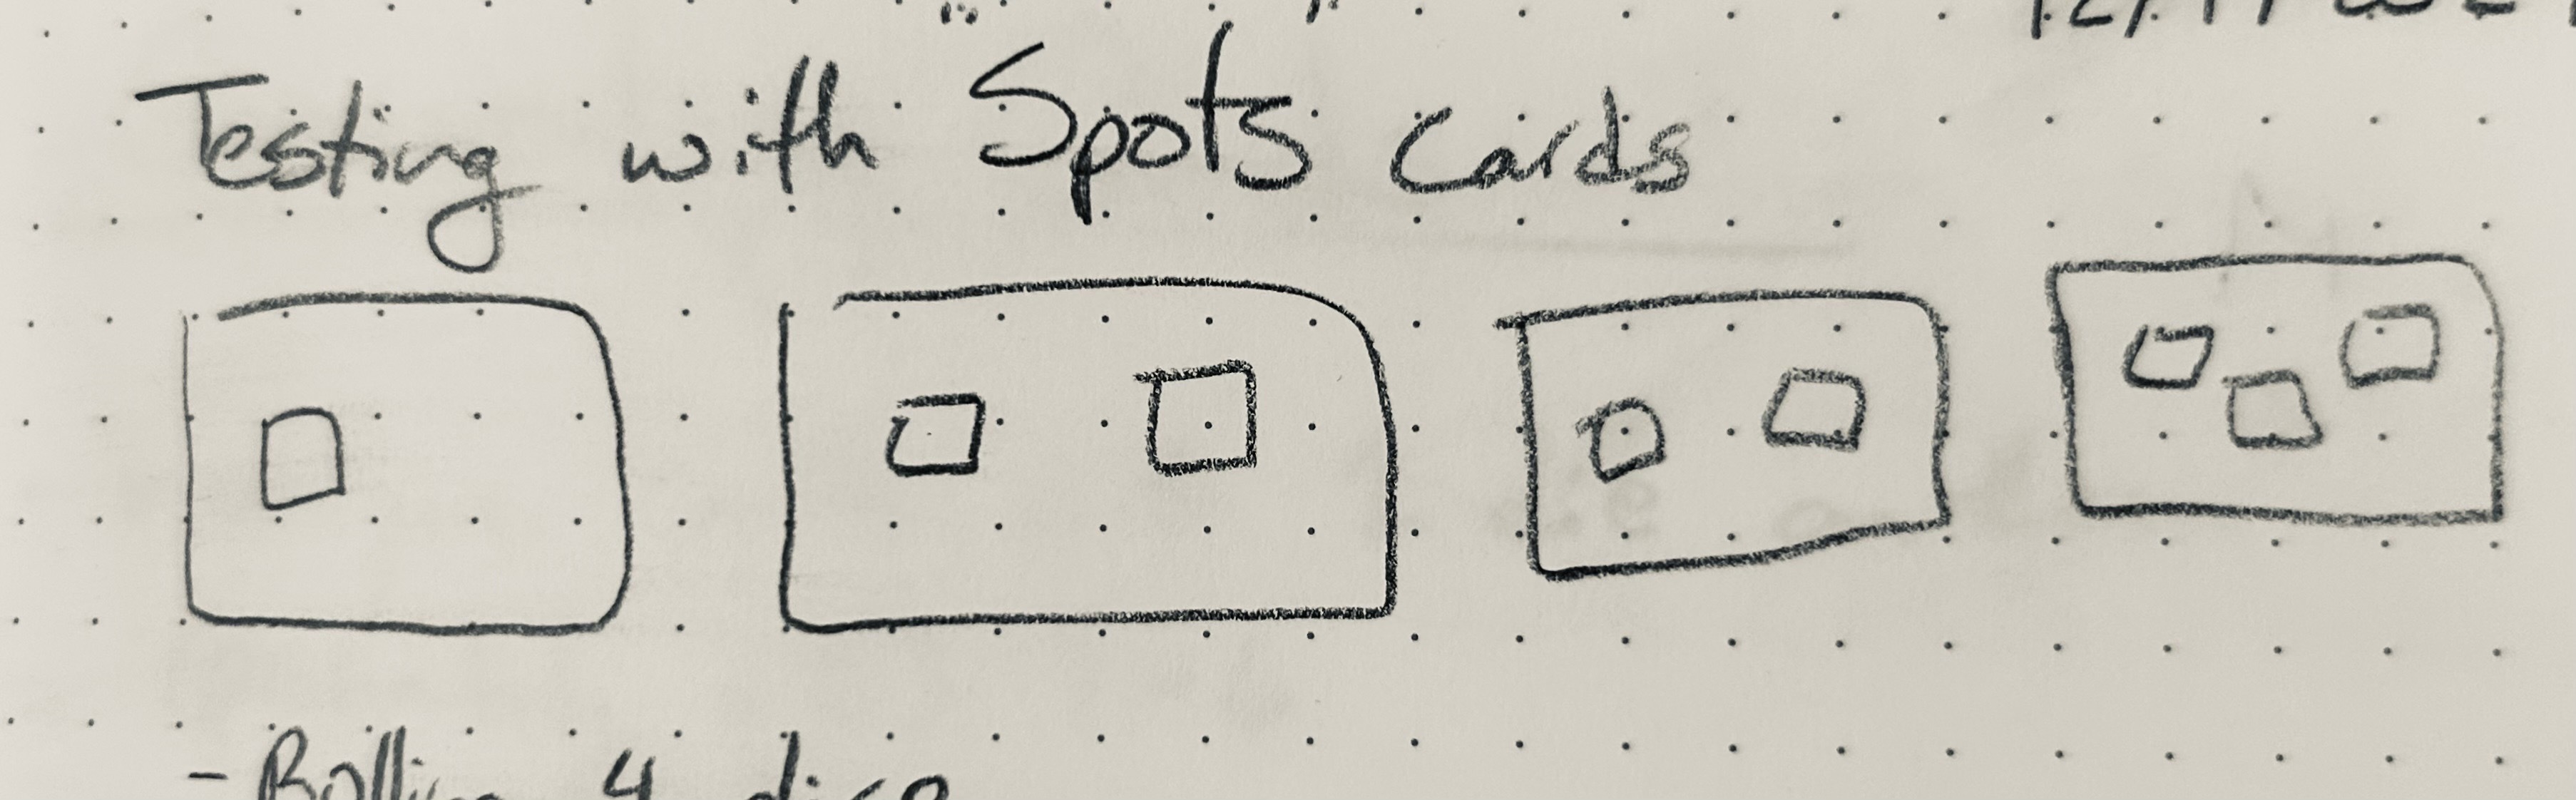 Testing with Spots Cards
- Rolling 4 dice